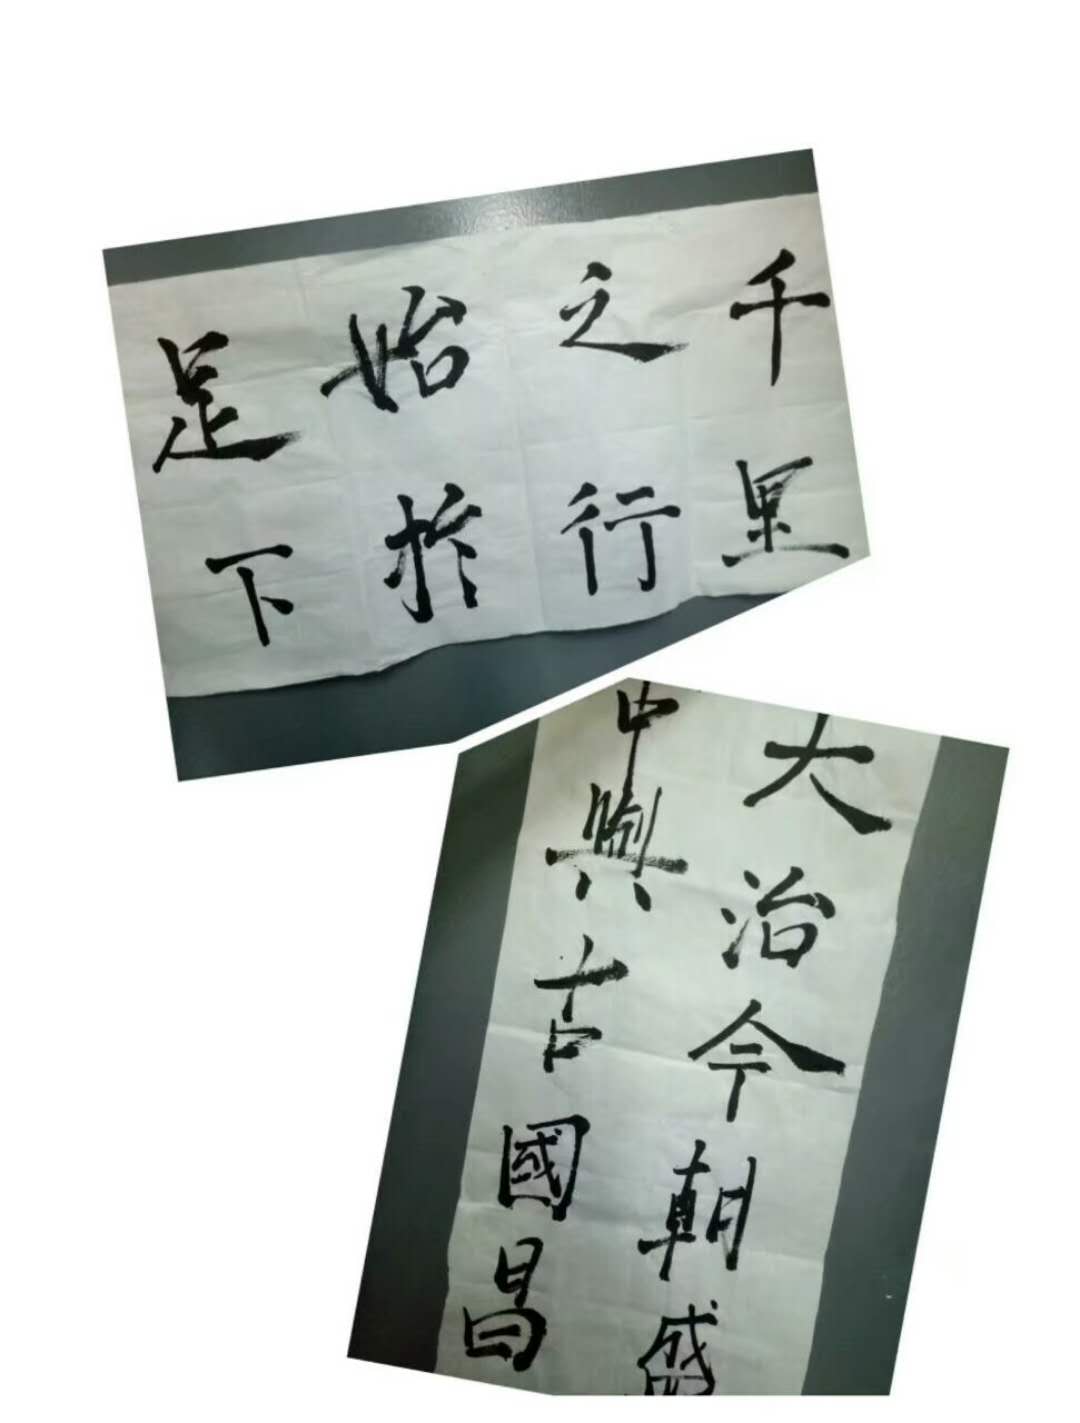 千里
之行
始於
足下
大治今朝盛
中興古國昌